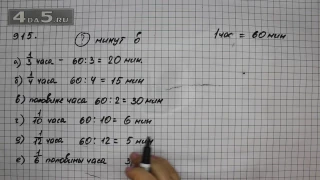 4DA5.RU
915. ? минут в 1 час = 60 мин
а) 1/3 часа - 60:3 = 20 мин.
б) 1/4 часа 60:4 = 15 мин
в) половине часа 60:2 = 30 мин
г) 1/10 часа 60:10 = 6 мин
д) 1/12 часа 60:12 = 5 мин
е) 1/6 половины часа 3